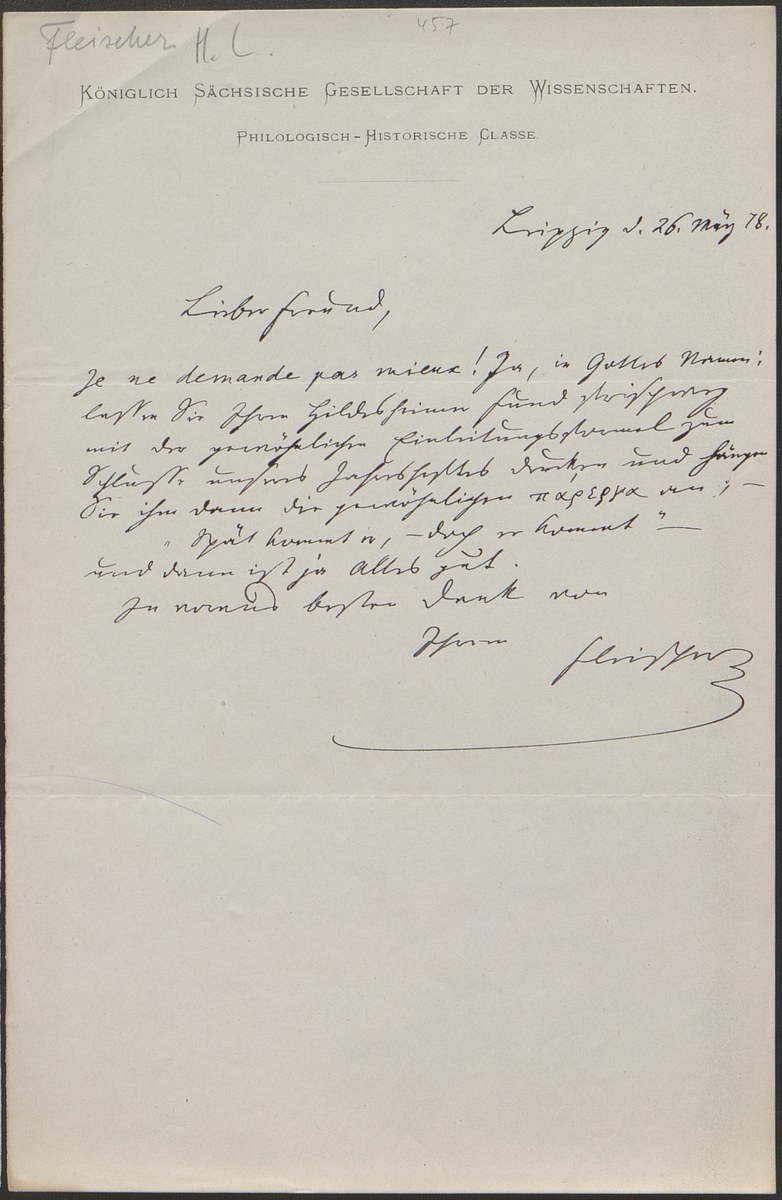 Fleischer H. L.
457
Königlich Sächsische Gesellschaft der Wissenschaften.
Philologisch-Historische Classe.
Leipzig d. 26. März 78.
Lieber Freund,
Je ne demande pas mieux! Ja, in Gottes Namen;
lassen Sie Ihren Hildesheimer Fund
mit der gewöhnlichen Einleitungsformel zum
Schlusse unseres Jahresheftes drucken und hängen
Sie ihm dann die gewöhnlichen πάρεργα an; –
„Spät kommt er, – doch er kommt“ –
und dann ist ja Alles gut.
Im voraus besten Dank von
Ihrem Fleischer